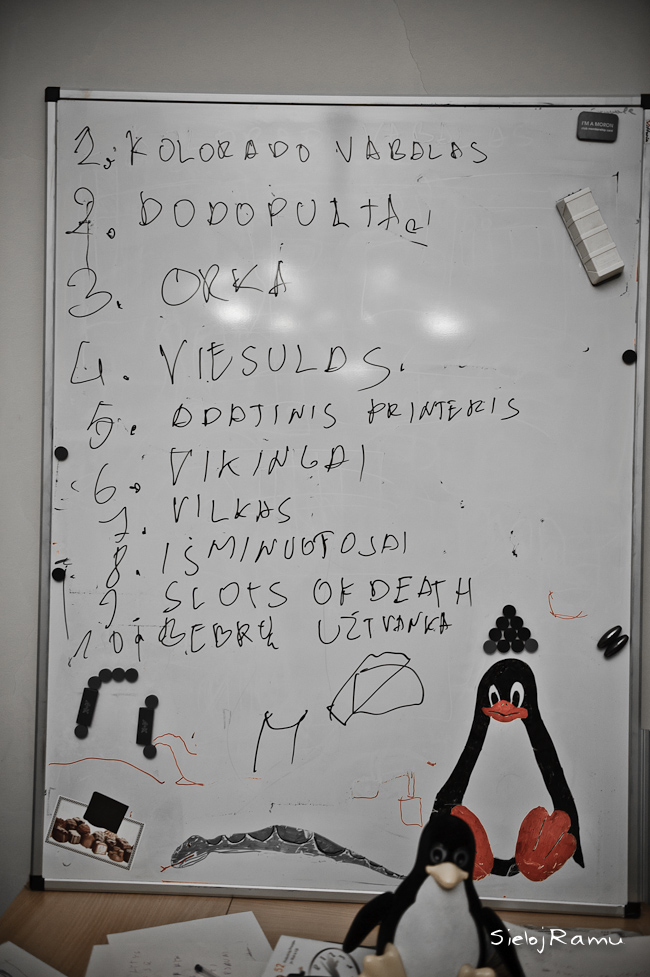 I'M A MORON
1. KOLORADO VABALAS
2. DODOPULTAI
3. ORKA
4. VIESULAS.
5. ADATINIS PRINTERIS
6. VIKINGAI
7. VILKAS
8. IŠMINUOTOJAI
9. SLOTS OF DEATH
10. BEBRŲ UŽTVANKA
M
SielojRamu